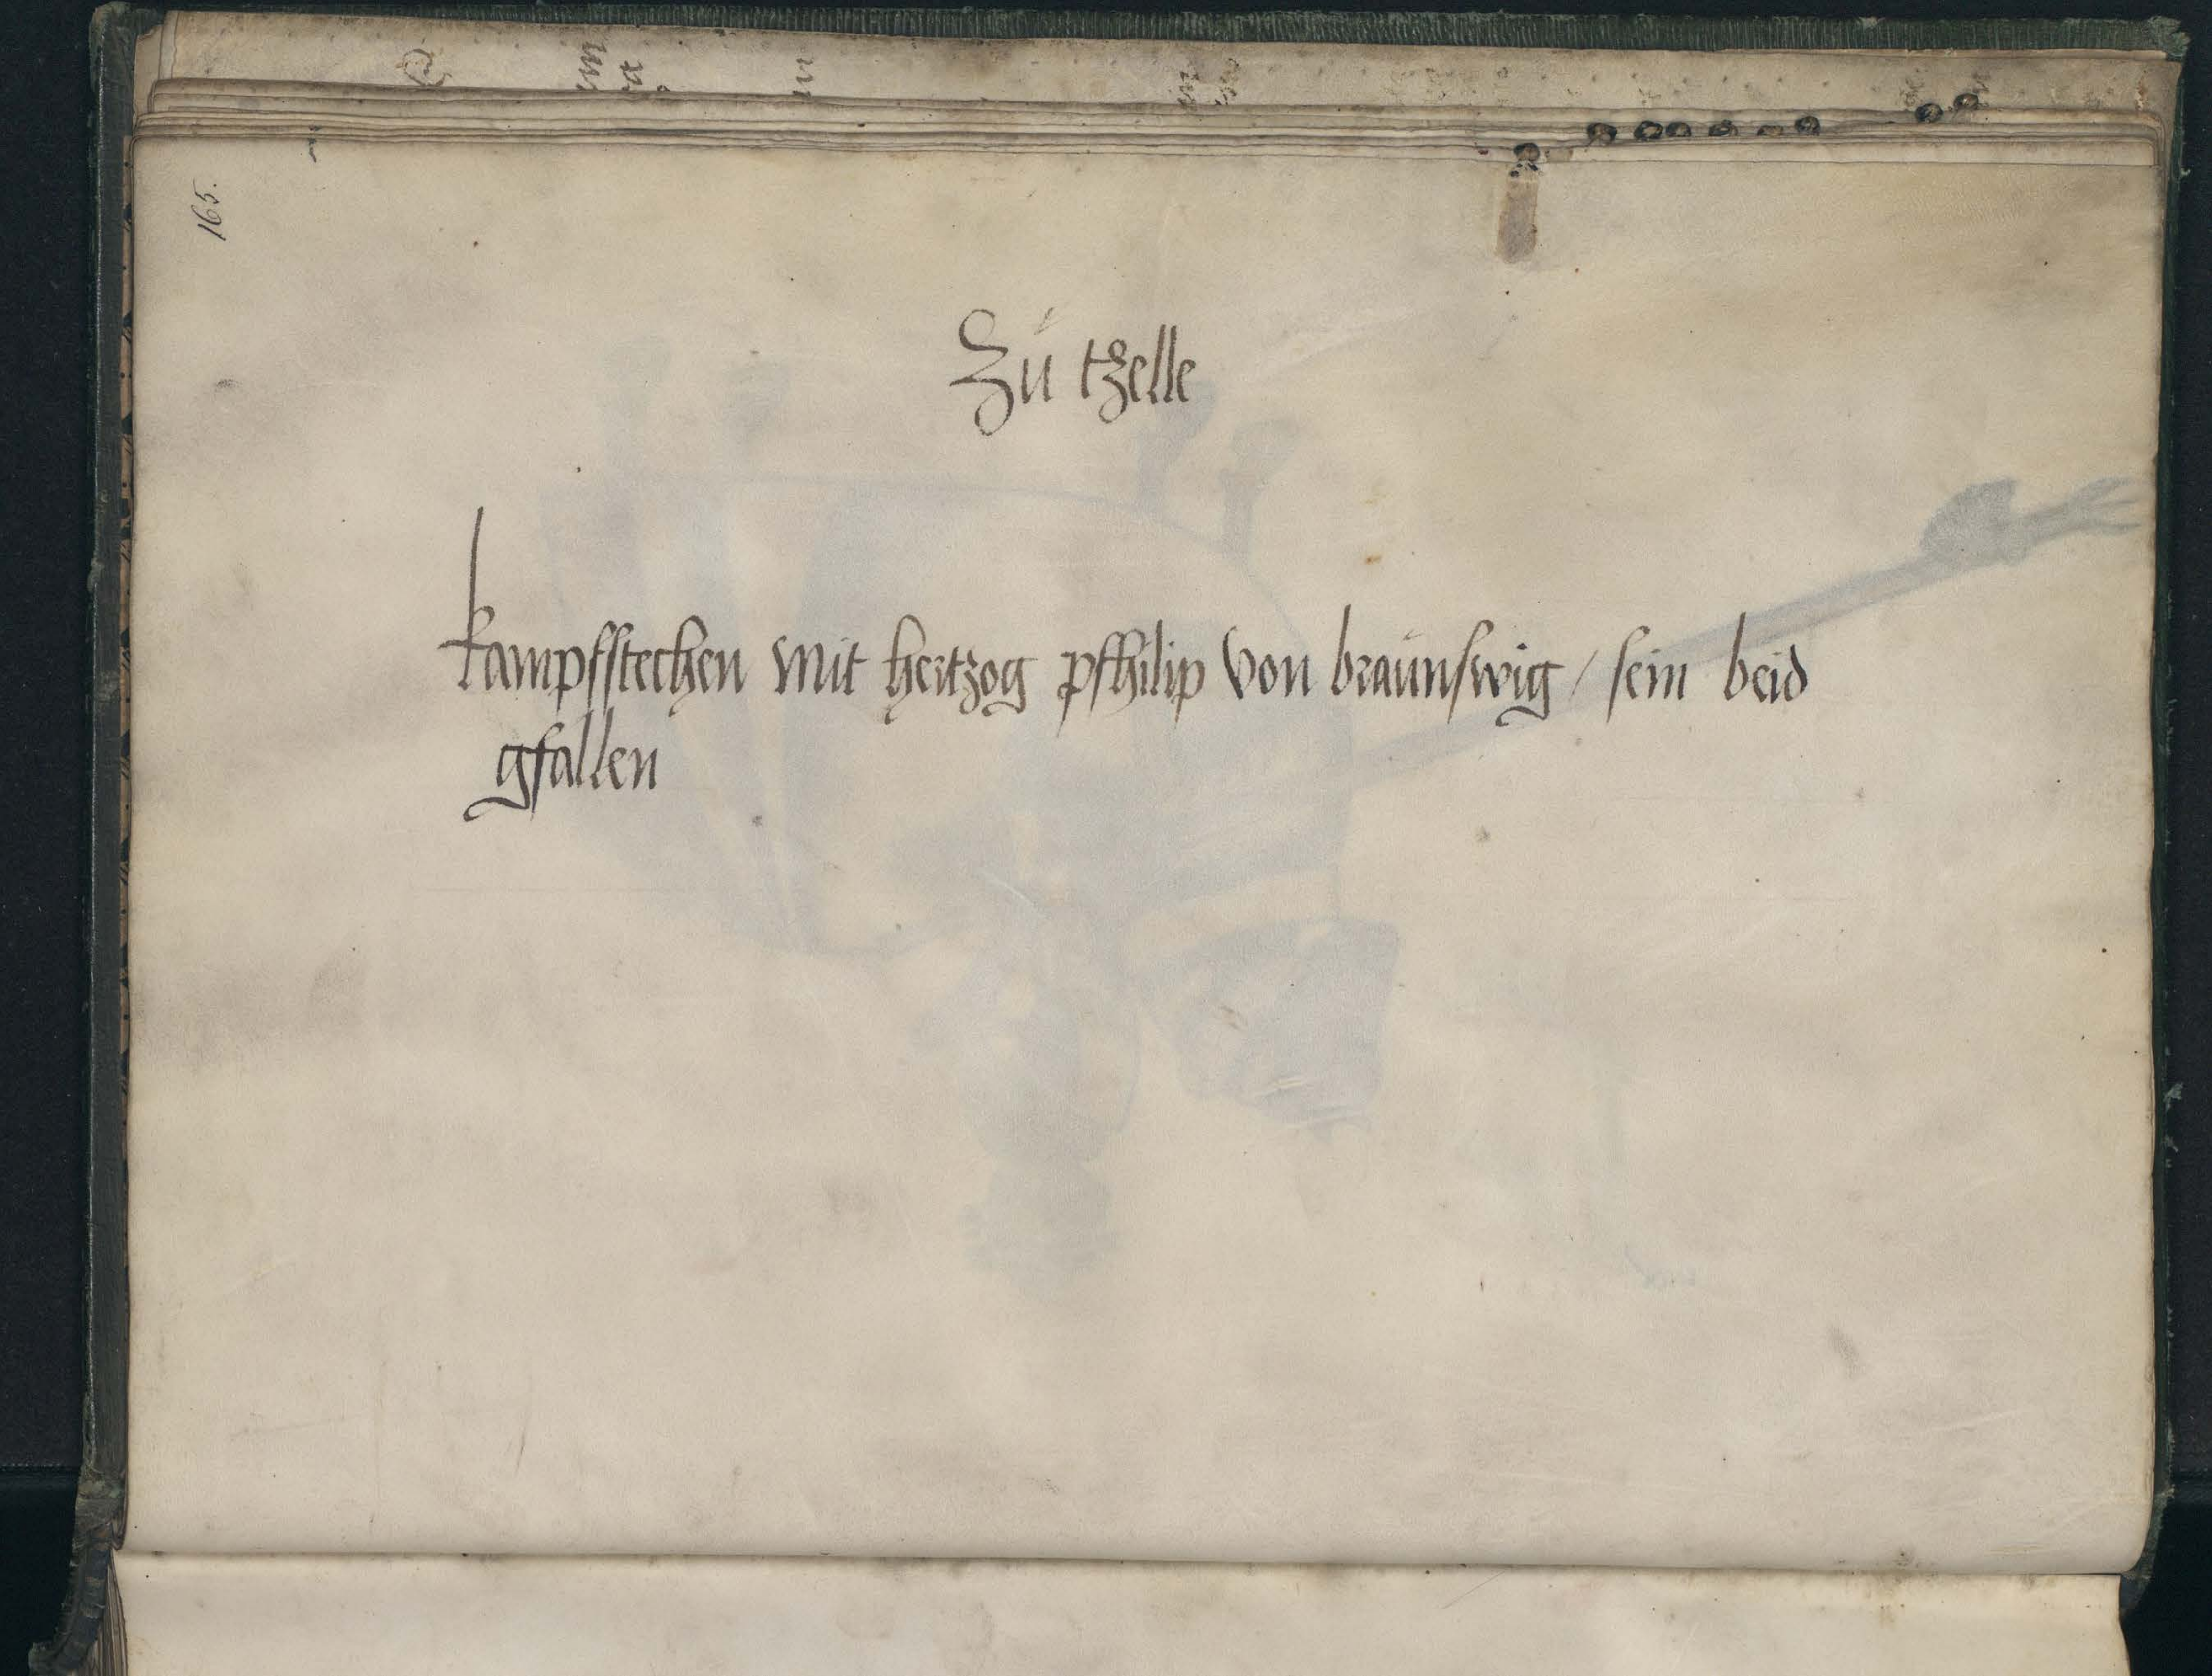 165.
Zů tzelle
kampfstechen mit hertzog pfhilip von braůnswig / sein beid
gfallen